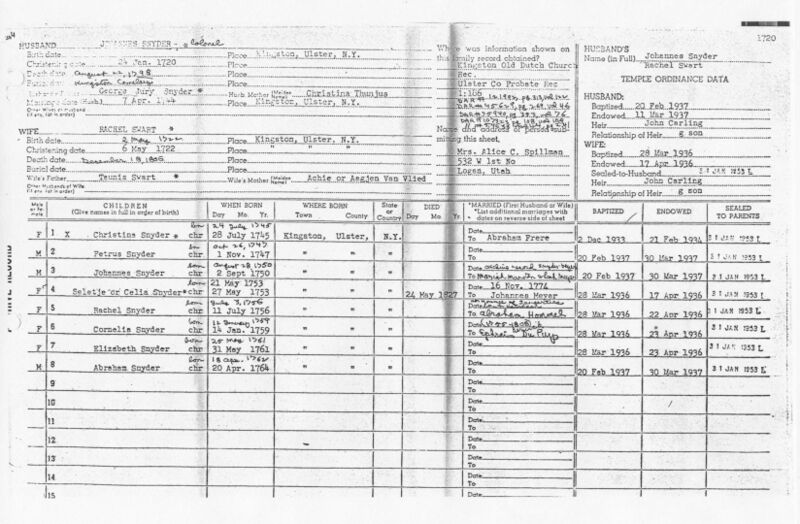 1720
HUSBAND JOHANNES SNYDER - Colonel
Birth date Place Kingston, Ulster, N.Y.
Christening date 24 Jan. 1720 Place
Death date August 22, 1798 Place
Burial date Kingston Cemetery Place
George Jury Snyder * Husb Mother (Maiden Name) Christina Thunjus
7 Apr. Place Kingston, Ulster, N.Y.
Other Wives of Husband
(if any, list in order)
WIFE RACHEL SWART *
Birth date 2 May 1722 Place Kingston, Ulster, N.Y.
Christening date 6 May 1722 Place " " "
Death date December 18, 1805 Place
Burial date Place
Wife's Father Teunis Swart * Wife's Mother (Maiden Name) Achie or Aegjen Van Vlied
Other Husbands of Wife
(if any, list in order)
Where was information shown on
this family record obtained?
Kingston Old Dutch Church
Rec.
Ulster Co Probate Rec
1:166
Name and address of person sub-
mitting this sheet.
Mrs. Alice C. Spillman
532 W 1st No
Logan, Utah
HUSBAND'S
Name (in Full) Johannes Snyder
Rachel Swart
TEMPLE ORDINANCE DATA
HUSBAND:
Baptized 20 Feb 1937
Endowed 11 Mar 1937
Heir John Carling
Relationship of Heir g son
WIFE:
Baptized 28 Mar 1936
Endowed 17 Apr 1936
Sealed-to-Husband 21 JAN 1953 L
Heir John Carling
Relationship of Heir g son
Male or Female
CHILDREN
(Give names in full in order of birth)
WHEN BORN
Day Mo. Yr.
WHERE BORN
Town County
State or Country
DIED
Day Mo Yr.
*MARRIED (First Husband or Wife)
*List additional marriages with
dates on reverse side of sheet
BAPTIZED
ENDOWED
SEALED TO PARENTS
born 24 July 1745 Date
F 1 X Christina Snyder * chr 28 July 1745 Kingston, Ulster, N.Y. To Abraham Frere 2 Dac 1933 21 Feb 1934 21 JAN 1953 L
born Oct 26, 1747 Date
M 2 Petrus Snyder chr 1 Nov. 1747 " " " To 20 Feb 1937 30 Mar 1937 31 JAN 1953 L
born August 28 1750 Date
M 3 Johannes Snyder chr 2 Sept 1750 " " " To 20 Feb 1937 30 Mar 1937 31 JAN 1953 L
born 21 May 1753 Date 16 Nov. 1774
F 4 Seletje or Celia Snyder * chr 27 May 1753 " " " 24 May 1827 To Johannes Meyer 28 Mar 1936 17 Apr 1936 31 JAN 1953 L
July 8, 1756
F 5 Rachel Snyder chr 11 July 1756 " " " To Abraham 28 Mar 1936 22 Apr 1936 31 JAN 1953 L
born 12 January 1759 Date
F 6 Cornelia Snyder chr 14 Jan. 1759 " " " To Ephraim Du Puy 28 Mar 1936 23 Apr 1936 31 JAN 1953 L
born 25 May 1761 Date
F 7 Elizabeth Snyder chr 31 May 1761 " " " To 28 Mar 1936 23 Apr 1936 31 JAN 1953 L
born 18 apr. Date
M 8 Abraham Snyder chr 20 Apr. 1764 " " " To 20 Feb 1937 30 Mar 1937 31 JAN 1953 L
9 Date To
10 Date To
11 Date To
12 Date To
13 Date To
14 Date To
15 Date